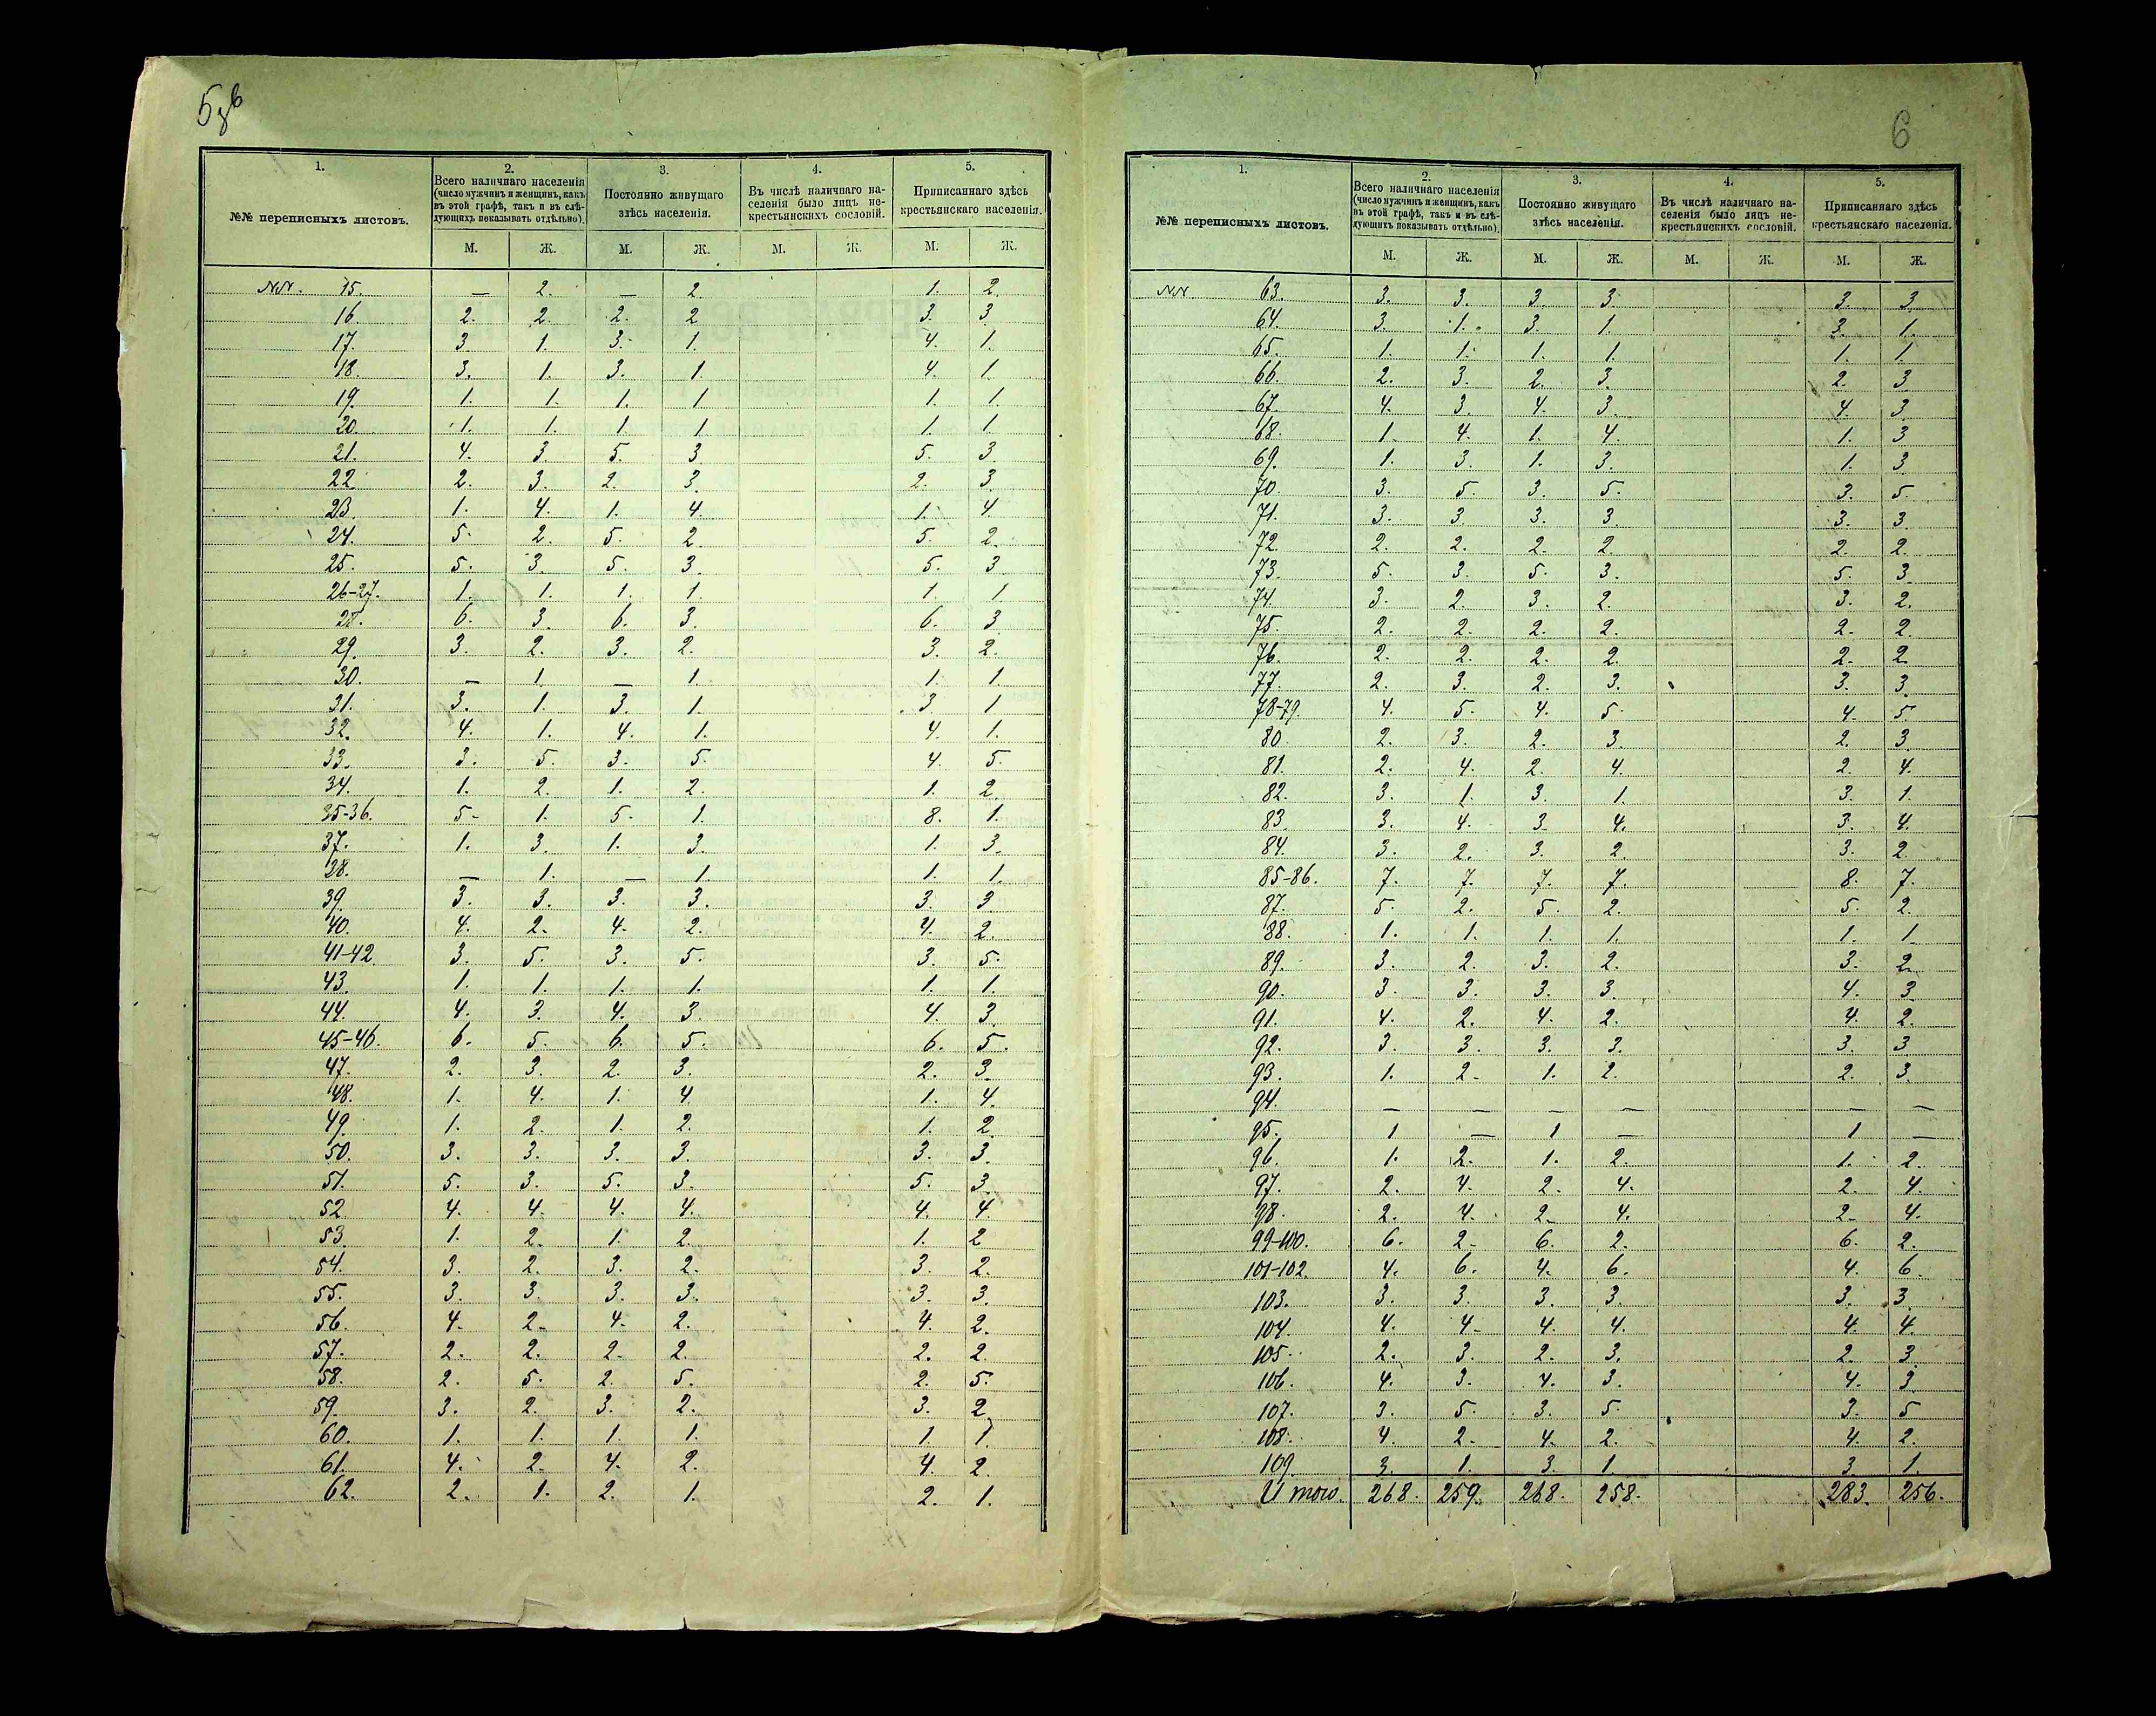 5 об
1. 2. 3. 4. 5.
№№ переписныхъ листовъ. Всего наличнаго населенія (число мужчинъ и женщинъ, какъ въ этой графѣ, такъ и въ слѣдующихъ показывать отдѣльно). Постоянно живущаго здѣсь населенія. Въ числѣ наличнаго населенія было лицъ некрестьянскихъ сословій. Приписаннаго здѣсь крестьянскаго населенія.
М. Ж. М. Ж. М. Ж. М. Ж.
№№. 15. — 2. — 2. 1. 2.
16 2. 2. 2. 2 3. 3
17. 3 1. 3. 1. 4. 1.
18. 3. 1. 3. 1. 4. 1.
19. 1. 1. 1. 1 1. 1.
20. 1. 1. 1. 1 1. 1
21. 4. 3. 5. 3 5. 3.
22 2. 3. 2. 3. 2. 3
23. 1. 4. 1. 4. 1. 4.
24. 5. 2. 5. 2. 5. 2.
25. 5. 3. 5. 3. 5. 3
26-27. 1. 1. 1. 1. 1. 1
28. 6. 3. 6. 3. 6. 3
29. 3. 2. 3. 2. 3. 2.
30. — 1. — 1. 1. 1
31. 3. 1. 3. 1. 3 1
32. 4. 1. 4. 1. 4. 1.
33. 3. 5. 3. 5. 4. 5.
34. 1. 2. 1. 2. 1. 2.
35-36. 5. 1. 5. 1. 8. 1.
37. 1. 3. 1. 3. 1. 3.
38. — 1. — 1. 1. 1.
39. 3. 3. 3. 3. 3. 3.
40. 4. 2. 4. 2. 4. 2.
41-42. 3. 5. 3. 5. 3. 5.
43. 1. 1. 1. 1. 1. 1.
44. 4. 3. 4. 3. 4. 3.
45-46. 6. 5. 6. 5. 6. 5.
47. 2. 3. 2. 3. 2. 3.
48. 1. 4. 1. 4 1. 4.
49. 1. 2. 1. 2. 1. 2.
50. 3. 3. 3. 3. 3. 3.
51. 5. 3. 5. 3. 5. 3.
52 4. 4. 4. 4. 4. 4.
53 1. 2. 1. 2. 1. 2
54. 3. 2. 3. 2. 3. 2.
55. 3. 3. 3. 3. 3. 3.
56 4. 2. 4. 2. 4. 2.
57. 2. 2. 2. 2. 2. 2.
58. 2. 5. 2. 5. 2. 5.
59. 3. 2. 3. 2. 3. 2
60. 1. 1. 1. 1. 1 1.
61. 4. 2. 4. 2. 4. 2.
62. 2. 1. 2. 1. 2. 1.
6
1. 2. 3. 4. 5.
№№ переписныхъ листовъ. Всего наличнаго населенія (число мужчинъ и женщинъ, какъ въ этой графѣ, такъ и въ слѣдующихъ показывать отдѣльно). Постоянно живущаго здѣсь населенія. Въ числѣ наличнаго населенія было лицъ некрестьянскихъ сословій. Приписаннаго здѣсь крестьянскаго населенія.
М. Ж. М. Ж. М. Ж. М. Ж.
№№ 63. 3. 3. 3. 3. 3. 3.
64. 3. 1. 3. 1. 3. 1.
65. 1. 1. 1. 1. 1. 1.
66. 2. 3. 2. 3. 2. 3
67. 4. 3. 4. 3. 4. 3.
68. 1. 4. 1. 4. 1. 3
69. 1. 3. 1. 3. 1. 3.
70. 3. 5. 3. 5. 3. 5.
71. 3. 3 3. 3. 3. 3.
72. 2. 2. 2. 2. 2. 2.
73. 5. 3. 5. 3. 5. 3.
74. 3. 2. 3. 2. 3. 2.
75. 2. 2. 2. 2. 2. 2.
76. 2. 2. 2. 2. 2. 2.
77. 2. 3. 2. 3. 3. 3.
78-79. 4. 5. 4. 5. 4. 5.
80 2. 3. 2. 3. 2. 3.
81. 2. 4. 2. 4. 2. 4.
82. 3. 1. 3. 1. 3. 1.
83. 3. 4. 3. 4. 3. 4.
84. 3. 2. 3. 2. 3. 2.
85-86. 7. 7. 7. 7. 8. 7.
87. 5. 2. 5. 2. 5. 2.
88. 1. 1. 1. 1. 1. 1.
89. 3. 2. 3. 2. 3. 2.
90. 3. 3. 3. 3. 4. 3.
91. 4. 2. 4. 2. 4. 2.
92. 3. 3. 3. 3. 3. 3
93. 1. 2. 1. 2. 2. 3.
94. — — — — — —
95. 1 — 1 — 1 —
96. 1. 2. 1. 2. 1. 2.
97. 2. 4. 2. 4. 2. 4.
98. 2. 4. 2. 4. 2. 4.
99-100. 6. 2. 6. 2. 6. 2.
101-102. 4. 6. 4. 6. 4. 6.
103. 3. 3. 3. 3. 3. 3.
104. 4. 4. 4. 4. 4. 4.
105. 2. 3. 2. 3. 2. 3.
106. 4. 3. 4. 3. 4. 3.
107. 3. 5. 3. 5. 3. 5
108. 4. 2. 4. 2. 4. 2.
109. 3. 1. 3. 1. 3. 1.
Итого. 268. 259. 268. 258. 283. 256.